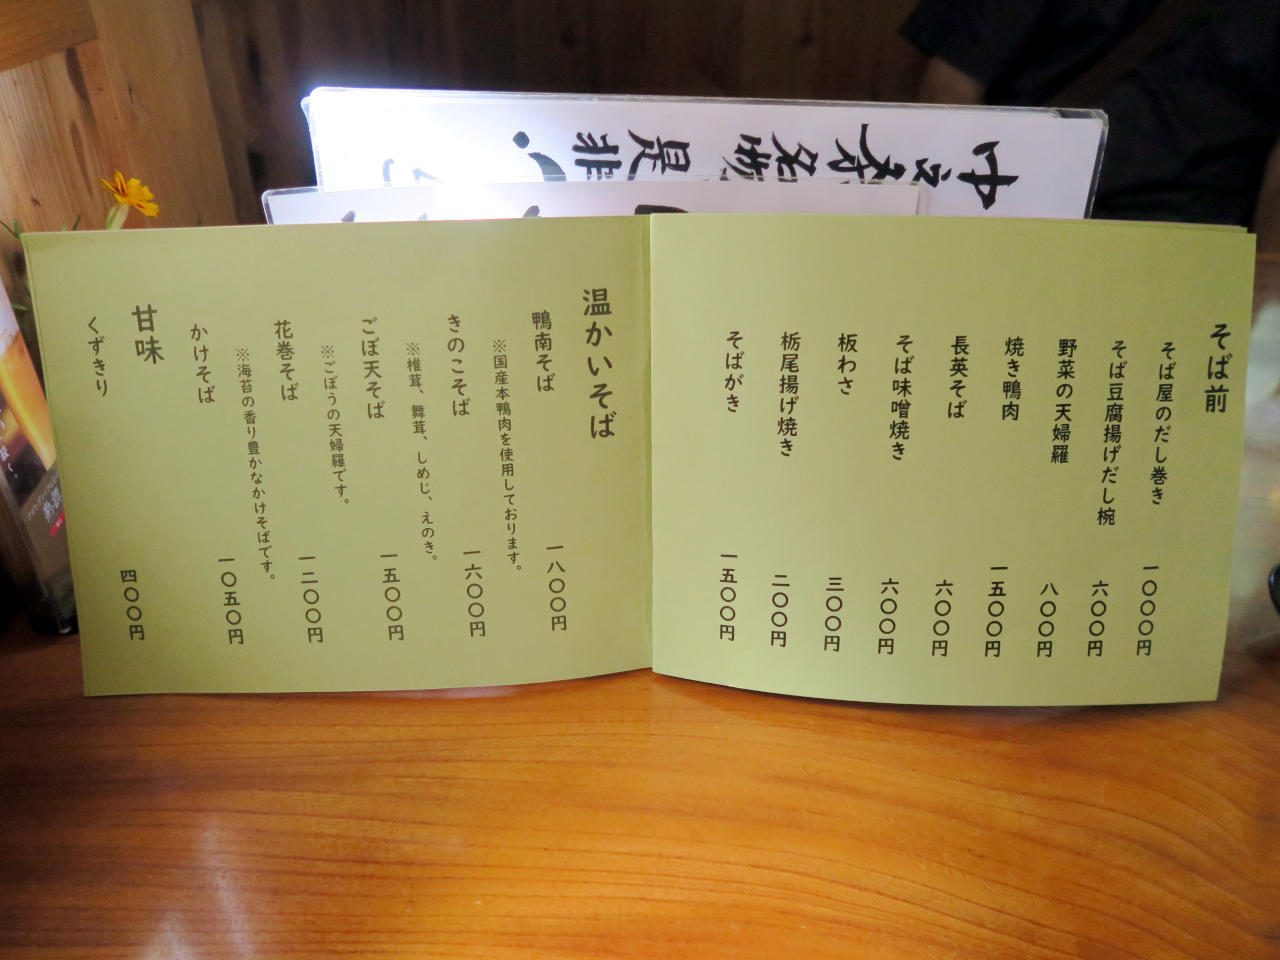 そば前
そば屋のだし巻き 一〇〇〇円
そば豆腐揚げだし椀 六〇〇円
野菜の天婦羅 八〇〇円
焼き鴨肉 一五〇〇円
長英そば 六〇〇円
そば味噌焼き 六〇〇円
板わさ 三〇〇円
栃尾揚げ焼き 二〇〇円
そばがき 一五〇〇円
温かいそば
鴨南そば 一八〇〇円
※国産本鴨肉を使用しております。
きのこそば 一六〇〇円
※椎茸、舞茸、しめじ、えのき。
ごぼ天そば 一五〇〇円
※ごぼうの天婦羅です。
花巻そば 一二〇〇円
※海苔の香り豊かなかけそばです。
かけそば 一〇五〇円
甘味
くずきり 四〇〇円
名物
是非